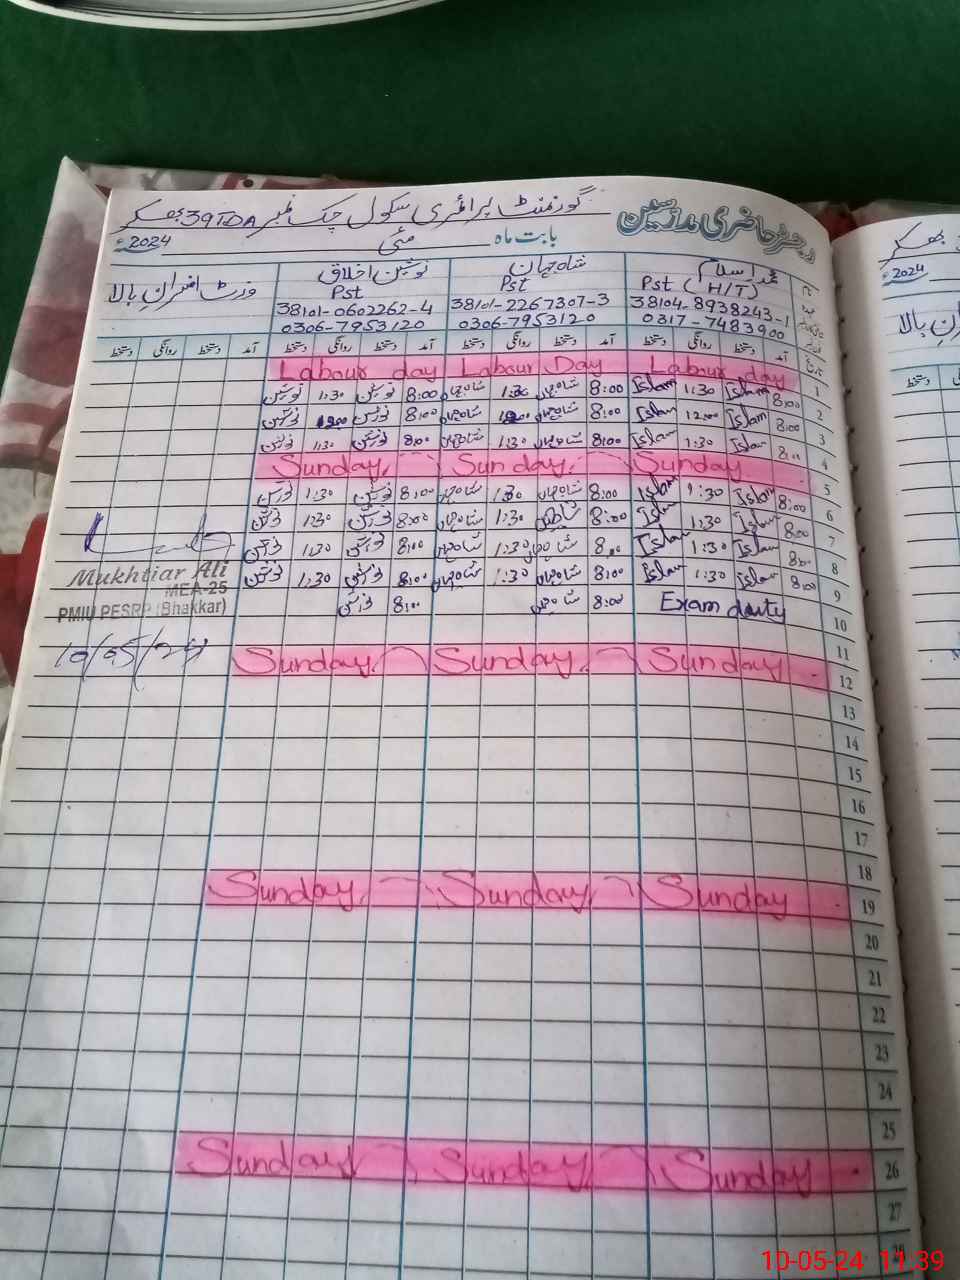 رجسٹر حاضری مدرسین
گورنمنٹ پرائمری سکول چک نمبر 39TDA بھکر
بابت ماہ مئی 2024ء
محمد اسلام شاہ جہان نوشین اخلاق وزٹ افسران بالا
Pst (H/T) Pst Pst
38104-8938243-1 38101-2267307-3 38101-0602262-4
0317-7483900 0306-7953120 0306-7953120
آمد دستخط روانگی دستخط آمد دستخط روانگی دستخط آمد دستخط روانگی دستخط آمد دستخط روانگی دستخط
1 Labour day Labour Day Labour day
2 8:00 Islam 1:30 Islam 8:00 شاہ جہاں 1:30 شاہ جہاں 8:00 نوشین 1:30 نوشین
3 8:00 Islam 12:00 Islam 8:00 شاہ جہاں شاہ جہاں 8:00 نوشین نوشین
4 8:00 Islam 1:30 Islam 8:00 شاہ جہاں 1:30 شاہ جہاں 8:00 نوشین 1:30 نوشین
5 Sunday Sunday Sunday
6 8:00 Islam 1:30 Islam 8:00 شاہ جہاں 1:30 شاہ جہاں 8:00 نوشین 1:30 نوشین
7 8:00 Islam 1:30 Islam 8:00 شاہ جہاں 1:30 شاہ جہاں 8:00 نوشین 1:30 نوشین
8 8:00 Islam 1:30 Islam 8:00 شاہ جہاں 1:30 شاہ جہاں 8:00 نوشین 1:30 نوشین
9 8:00 Islam 1:30 Islam 8:00 شاہ جہاں 1:30 شاہ جہاں 8:00 نوشین 1:30 نوشین
10 Exam duty 8:00 شاہ جہاں 8:00 نوشین
Mukhtiar Ali
MEA-25
PMIU PESRP (Bhakkar)
10/05/24
11
12 Sunday Sunday Sunday
13
14
15
16
17
18
19 Sunday Sunday Sunday
20
21
22
23
24
25
26 Sunday Sunday Sunday
27
28
بھکر
2024ء
دستخط
10-05-24 11:39